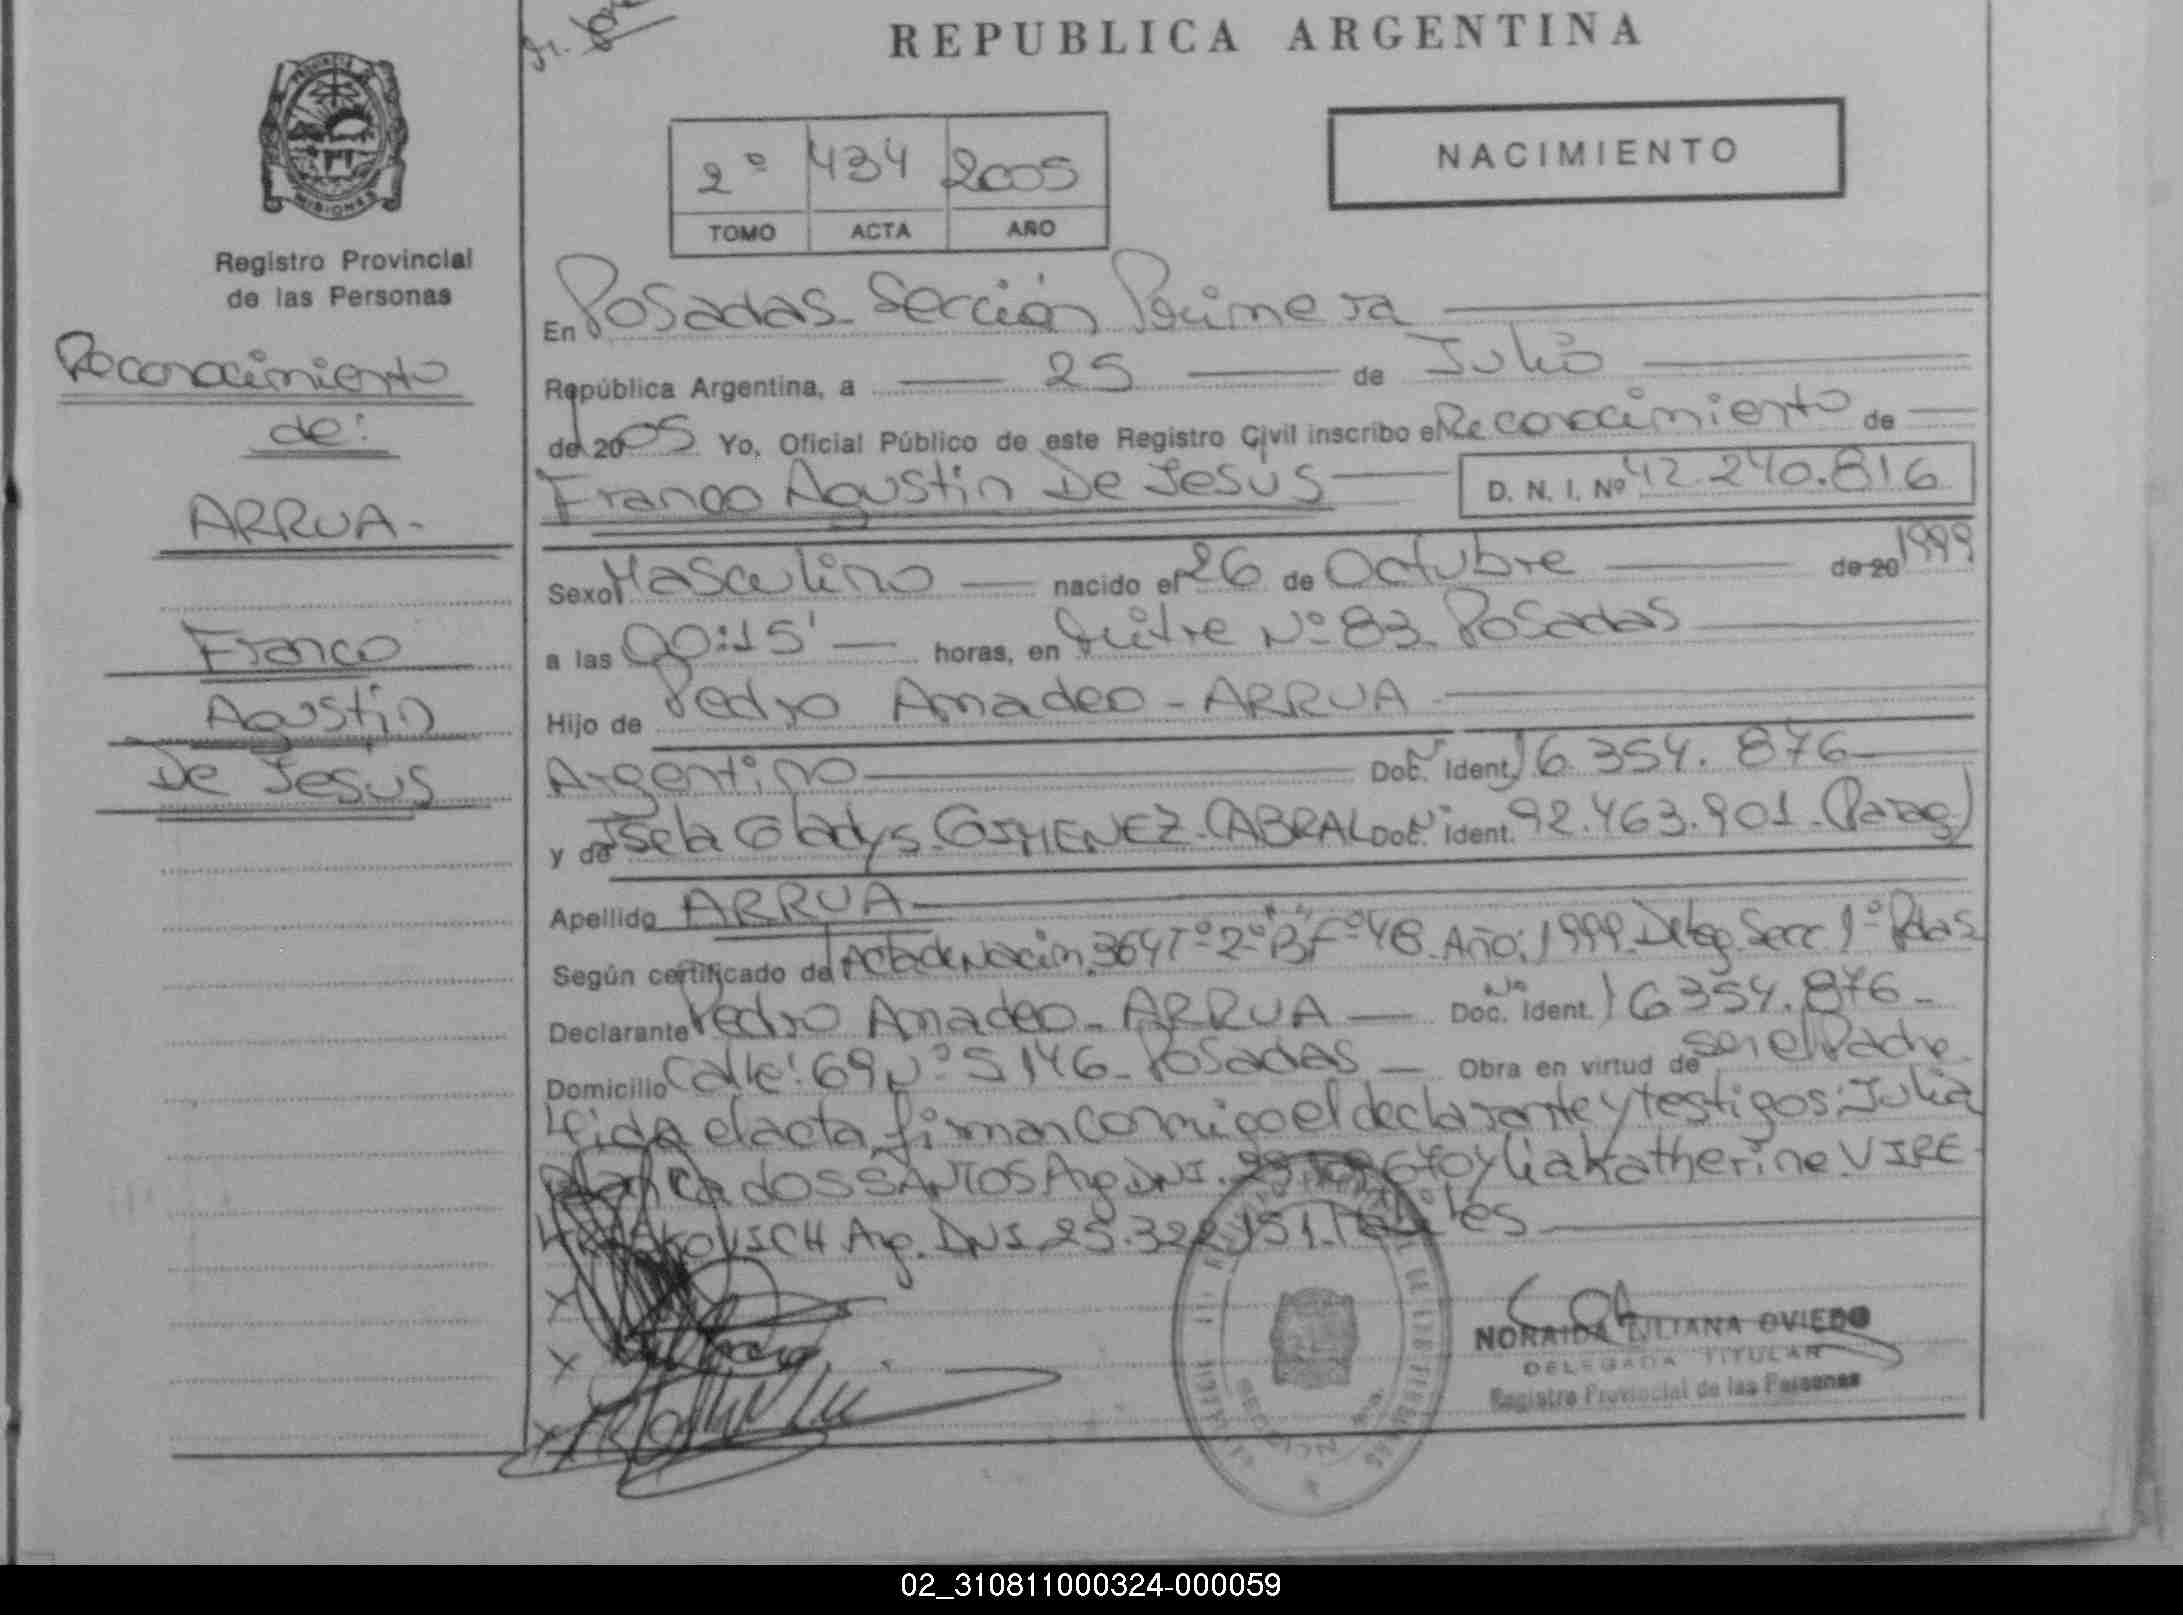 REPUBLICA ARGENTINA
PROVINCIA DE
MISIONES
Registro Provincial
de las Personas
Reconocimiento
de:
ARRUA-
Franco
Agustin
De Jesus
2º 434 2005
TOMO ACTA AÑO
NACIMIENTO
En Posadas Sección Primera
República Argentina, a 25 de Julio
de 2005 Yo, Oficial Público de este Registro Civil inscribo el Reconocimiento de
Franco Agustin De Jesus D. N. I. Nº 42.240.816
Sexo Masculino nacido el 26 de Octubre de 20 1999
a las 00:15' horas, en Mitre Nº 83 Posadas
Hijo de Pedro Amadeo - ARRUA
Argentino Doc. Ident. 16.354.876
y de Isela Gladys GIMENEZ CABRAL Doc. Ident. 92.463.901 (Parag)
Apellido ARRUA
Según certificado de Acta de Nacim. 364 Tº 2º Fº 48 Año: 1999 Deleg. Secc 1º Pdas
Declarante Pedro Amadeo - ARRUA Doc. Ident. 16354.876-
Domicilio Calle: 69 Nº 5146 - Posadas Obra en virtud de ser el Padre
Leida el acta firman conmigo el declarante y testigos: Julia
dos SANTOS Arg DNI. y Lia Katherine VIRE
Arg. DNI 25.322.151
NORAIDA LILIANA OVIEDO
DELEGADA TITULAR
Registro Provincial de las Personas
02_310811000324-000059